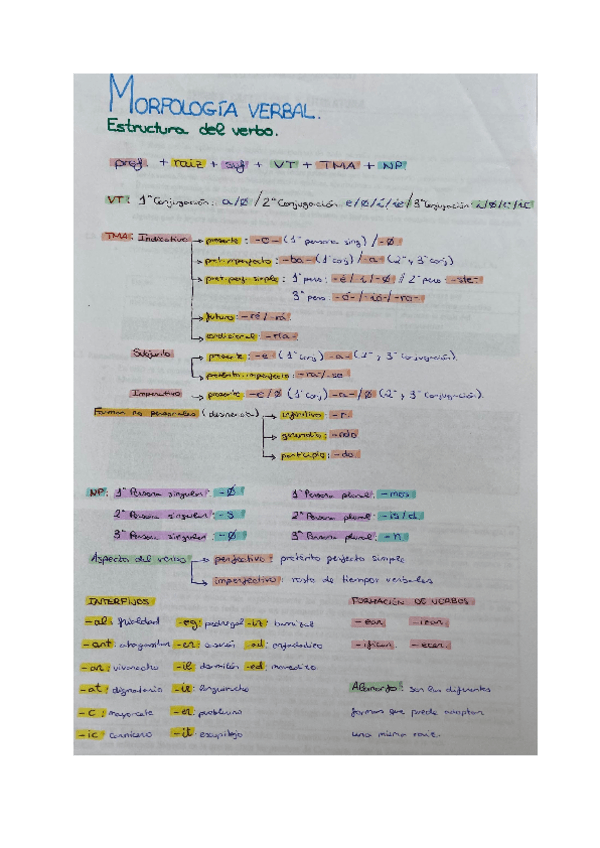 MORFOLOGÍA VERBAL.
Estructura del verbo.
pref. + raiz + suf + VT + TMA + NP
VT: 1ª Conjugación: a/Ø / 2ª Conjugación e/Ø/i/ie / 3ª Conjugación i/Ø/e/ie
TMA: Indicativo → presente: -o- (1ª persona sing) / -Ø
→ pret. imperfecto: -ba- (1ª conj) / -a- (2ª y 3ª conj)
→ pret. perf. simple: 1ª pers: -é/-i/-Ø // 2ª pers: -ste-
3ª pers: -ó-/-ió/-ro-
→ futuro: -ré/-rá
→ condicional: -ría-
Subjuntivo → presente: -e (1ª conj) -a- (2ª y 3ª conjugación).
→ pretérito imperfecto: -ra/-se
Imperativo → presente: -e/Ø (1ª conj) -a-/Ø (2ª y 3ª conjugación).
Formas no personales (desinencia) → infinitivo: -r.
→ gerundio: -ndo
→ participio: -do.
NP: 1ª Persona singular: -Ø 1ª Persona plural: -mos
2ª Persona singular: -s 2ª Persona plural: -is/d.
3ª Persona singular: -Ø 3ª Persona plural: -n.
Aspecto del verbo → perfectivo: pretérito perfecto simple
→ imperfectivo: resto de tiempos verbales
INTERFIJOS FORMACIÓN DE VERBOS
-al: frialdad -eg: pedregal -in: -ear. -izar.
-ant: -er: -ad: -ificar. -ecer.
-ar: vivaracho -il: dormilón -ed:
-at: dignatario -ir: Alomorfo: son las diferentes
-c: mayorcete -er: formas que puede adoptar
-ic: carnicero -it: escupitajo una misma raiz.